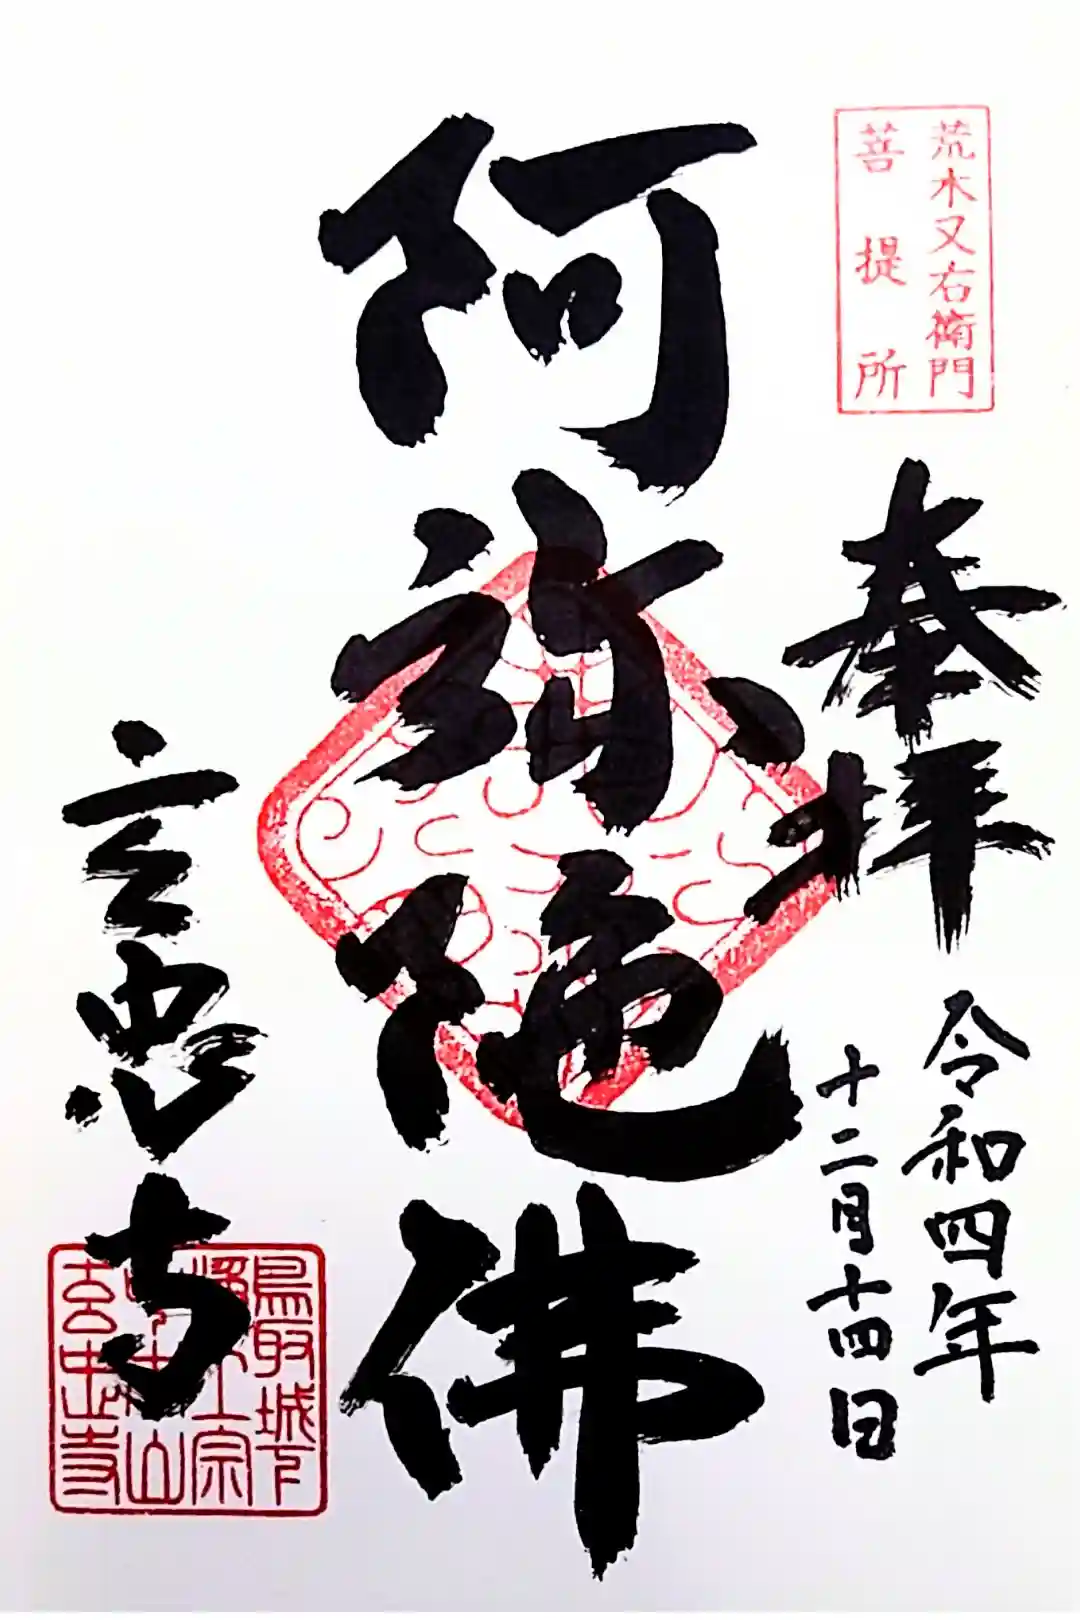 荒木又右衛門
菩提所
奉拝
令和四年
十二月十四日
阿弥陀佛
玄忠寺
鳥取城下
浄土宗
山
玄忠寺